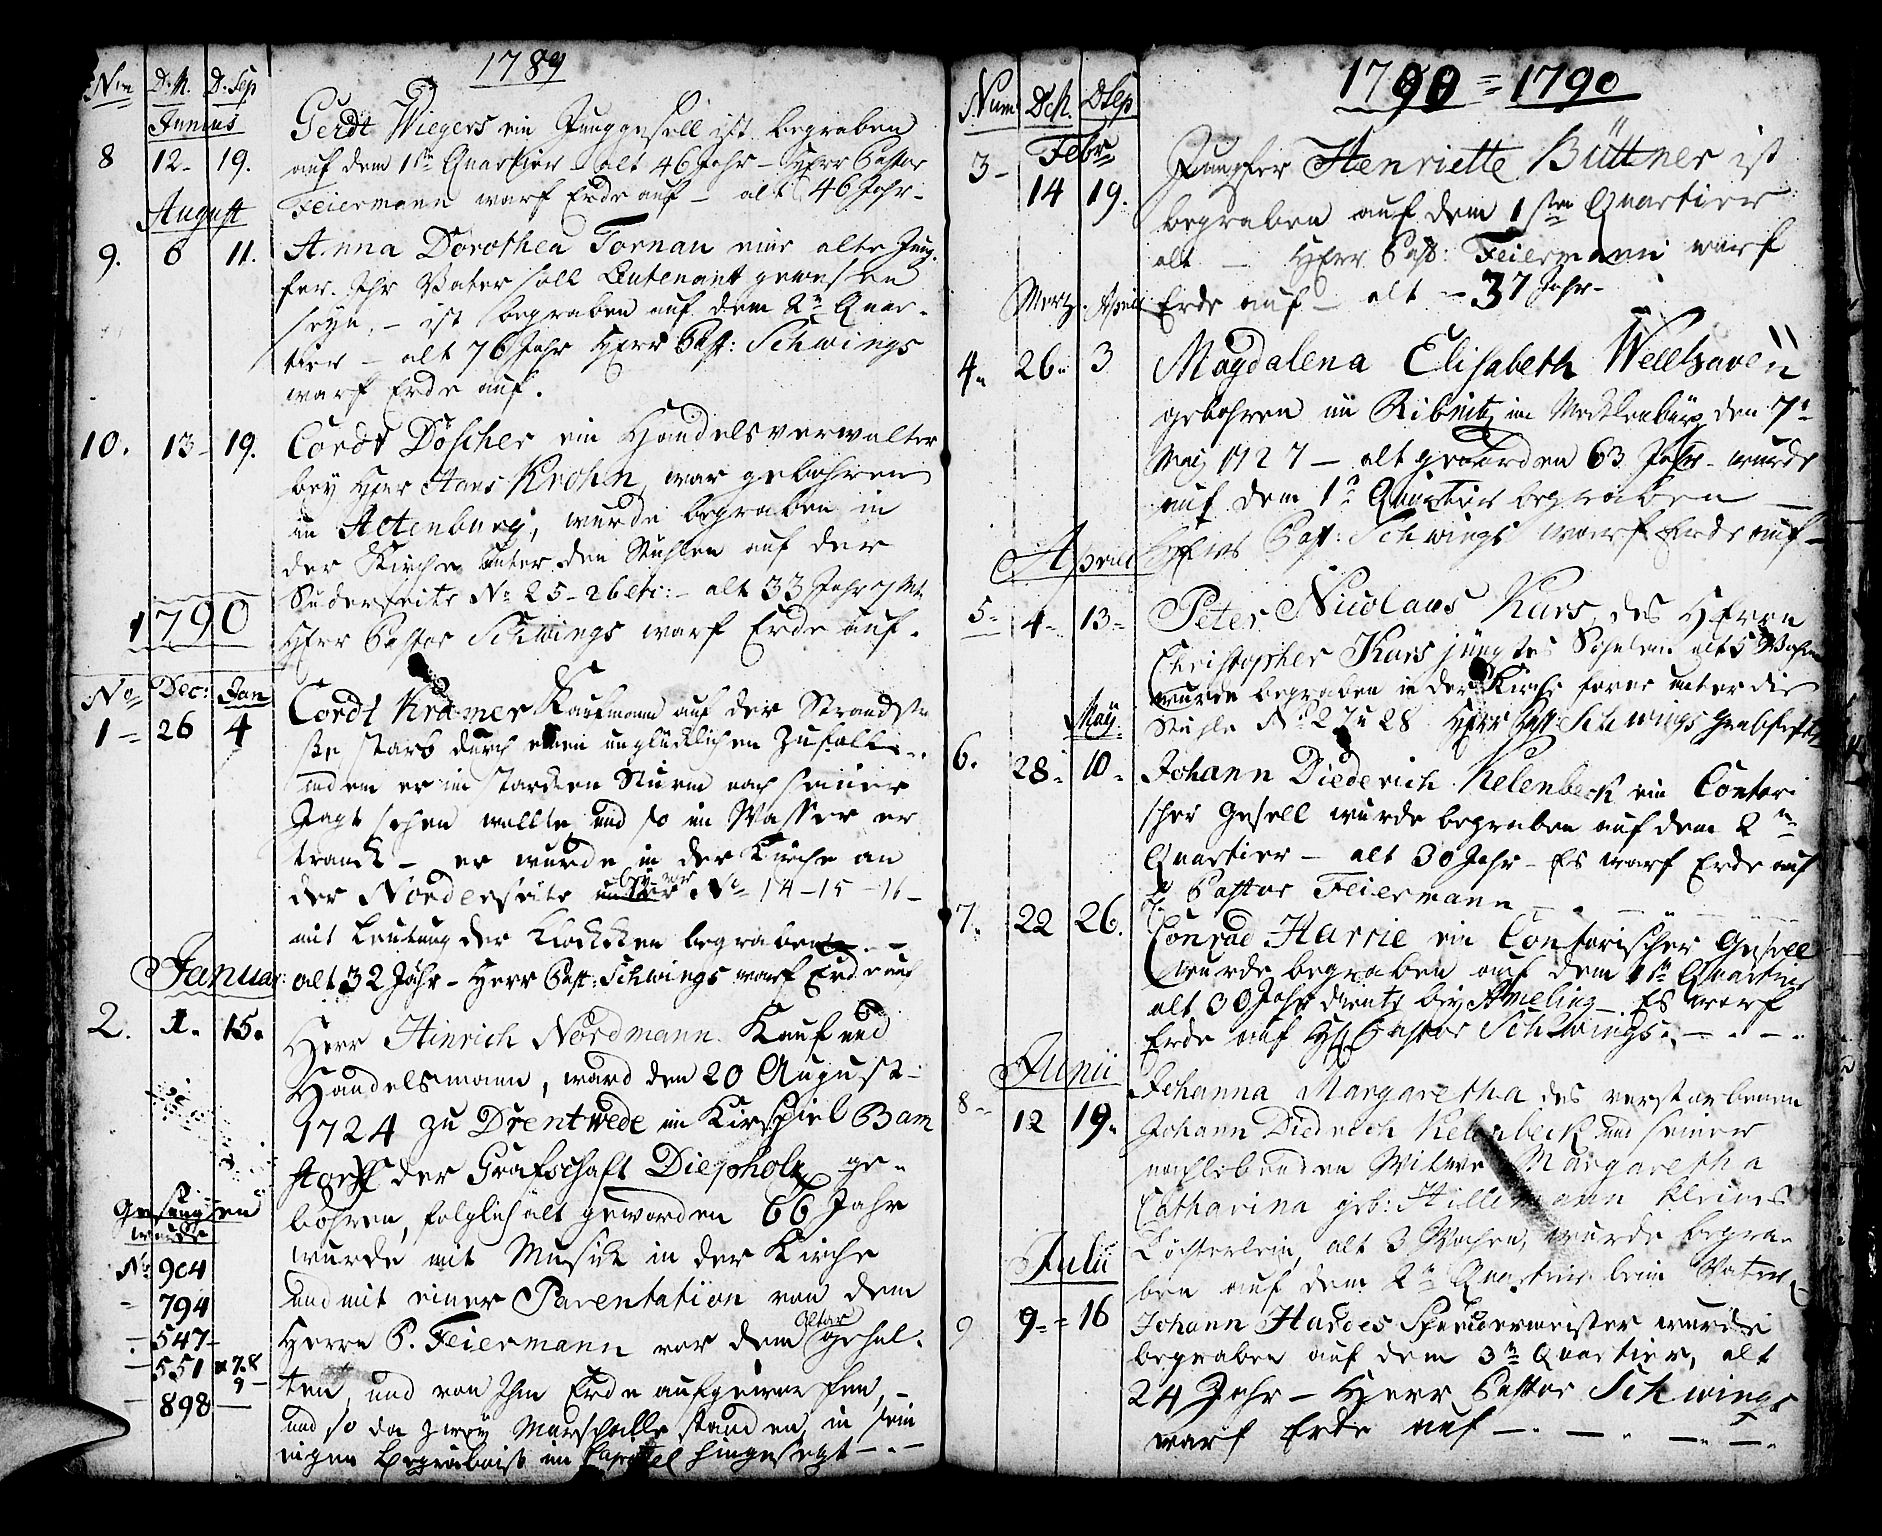 1789
Nm D. N. D. Sep
Junius
Gerdt Wiegers ein Junggesell ist begraben
8 12. 19. auf dem 1sten Quartier alt 46 Jahr - Herr Pastor
Feiermann warf Erde auf - alt 46 Jahr -
August
9. 6 11. Anna Dorothea Tornau eine alte Jung
fer. Ihr Vater soll Leutenant gewesen
seyn, - ist begraben auf dem 2n Quar-
tier - alt 76 Jahr Herr Past: Schwings
warf Erde auf.
10. 13 - 19. Cordt Döscher ein Handelsverwalter
bey Herr Hans Krohn, war gebohren
in Altenburg, wurde begraben in
der Kirche unter den Stühlen auf der
Suderseite No 25 - 26 etc: - alt 33 Jahr 7 Mt.
Herr Pastor Schwings warf Erde auf.
1790
No Dec: Jan
1 - 26 4 Cordt Kramer Kaufmann auf der Strandst
ße starb durch einen unglücklichen Zufall -
indem er im starcken Sturm nach seiner
Jagt sehen wollte und so im Wasser er
tranck - er wurde in der Kirche an
der Norderseite unter No 14 - 15 - 16 -
mit Leutung der Klocken begraben . -
Januar alt 32 Jahr - Herr Past: Schwings warf Erde auf
2. 1. 15. Herr Hinrich Nordmann Kauf und
Handelsmann, ward den 20 August -
1724 zu Drentwede im Kirspiel Barn
storff der Grafschaft Diepholz ge-
bohren, folglich alt geworden 66 Jahr
wurde mit Musick in der Kirche
und mit einer Parentation von dem
Herrn P. Feiermann vor dem Altar gehal-
ten, und von Ihm Erde aufgeworfen, -
und so da zwey Marschälle standen in sein
eigen Begräbniß im Capittel hingesezt - . -
Gesungen
wurde
No 904
- 794
- 547 -
- 551 7.8
9 -
- 898 -
1790 = 1790
Num Deh. DSep
Febr
3 - 14 19. Jungfer Henriette Büttner ist
begraben auf dem 1sten Quartier
alt - Herr Past: Feiermann warf
Erde auf - alt - 37 Jahr -
Mertz. April
4. 26. 3 Magdalena Elisabeth Wellhaven
gebohren in Ribnitz im Mecklenburg den 7t
Maij 1727 - alt geworden 63 Jahr - wurde
auf dem 1n Quartier begraben -
Herr Past: Schwings warf Erde auf -
April
5 - 4 - 13 - Peter Nicolaus Kurs, des Herrn
Christopher Kurs jüngstes Söhnlein alt 5 Wochen
wurde begraben in der Kirche ferne unter die
Stühle No 27 u 28 Herr Past. Schwings
Maij.
6. 28. 10. Johann Diederich Kelenbeck ein Contori
scher Gesell wurde begraben auf dem 2n
Quartier - alt 30 Jahr - Es warf Erde auf
H. Pastor Feiermann - . -
7. 22 26. Conrad Harrie ein Contorischer Gesell
wurde begraben auf dem 1sn Quartier
alt 30 Jahr diente bey Ameling - Es warf
Erde auf H. Pastor Schwings. - . - .
Junii
8 - 12 19. Johanna Margaretha des verstorbenen
Johann Diedrich Kelenbeck und seiner
nachlebenden Witwe Margaretha
Catharina geb: Hillemann kleines
Töchterlein, alt 3 Wochen, wurde begra-
ben auf dem 2n Quartier beim Vater.
Julii
9 9. - 16 Johann Hardes wurde
begraben auf dem 3n Quartier, alt
24 Jahr - Herr Pastor Schwings
warf Erde auf - . - . - . - .